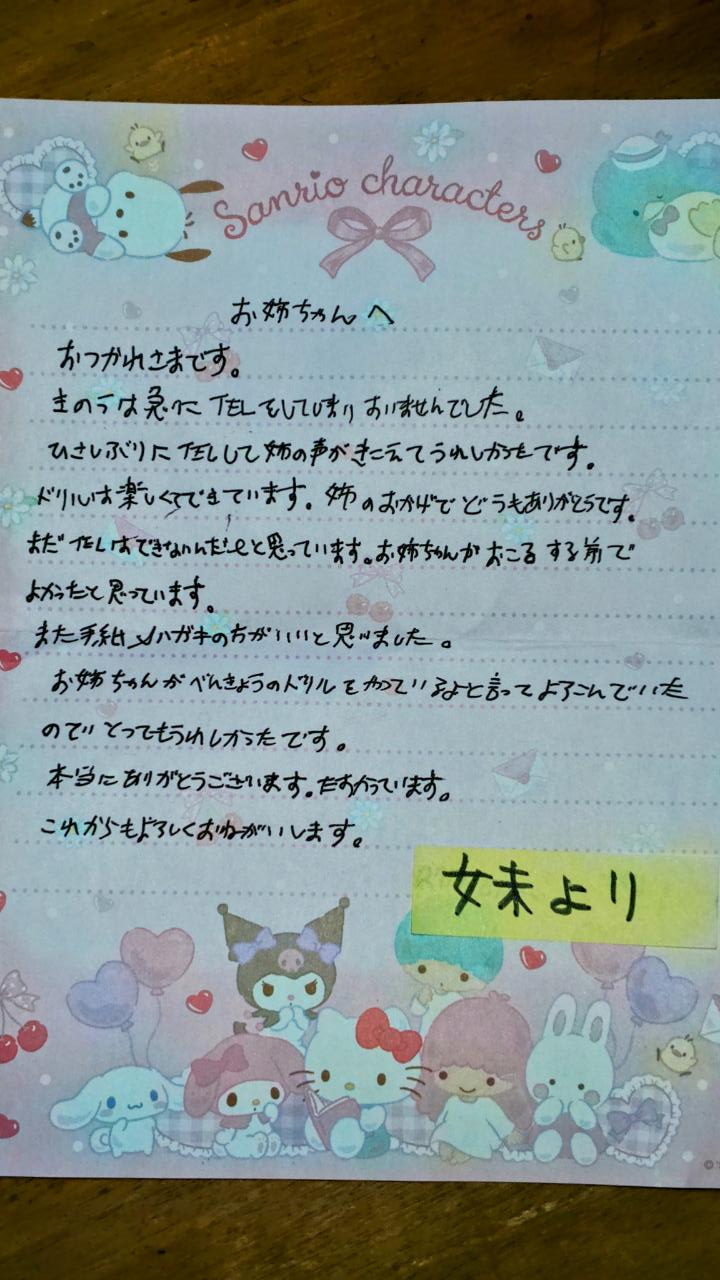 Sanrio characters
お姉ちゃんへ
おつかれさまです。
きのうは急にTELをしてしまりおいませんでした。
ひさしぶりにTELして姉の声がきこえてうれしかったです。
ドリルは楽しくてできています。姉のおかげでどうもありがとうです。
まだTELはできないんだ と思っています。お姉ちゃんがおこるする前で
よかったと思っています。
また手紙 ハガキの方がいいと思いました。
お姉ちゃんがべんきょうのドリルをやっているよと言ってよろこんでいた
のでとってもうれしかったです。
本当にありがとうございます。たすかっています。
これからもよろしくおねがいします。
妹より